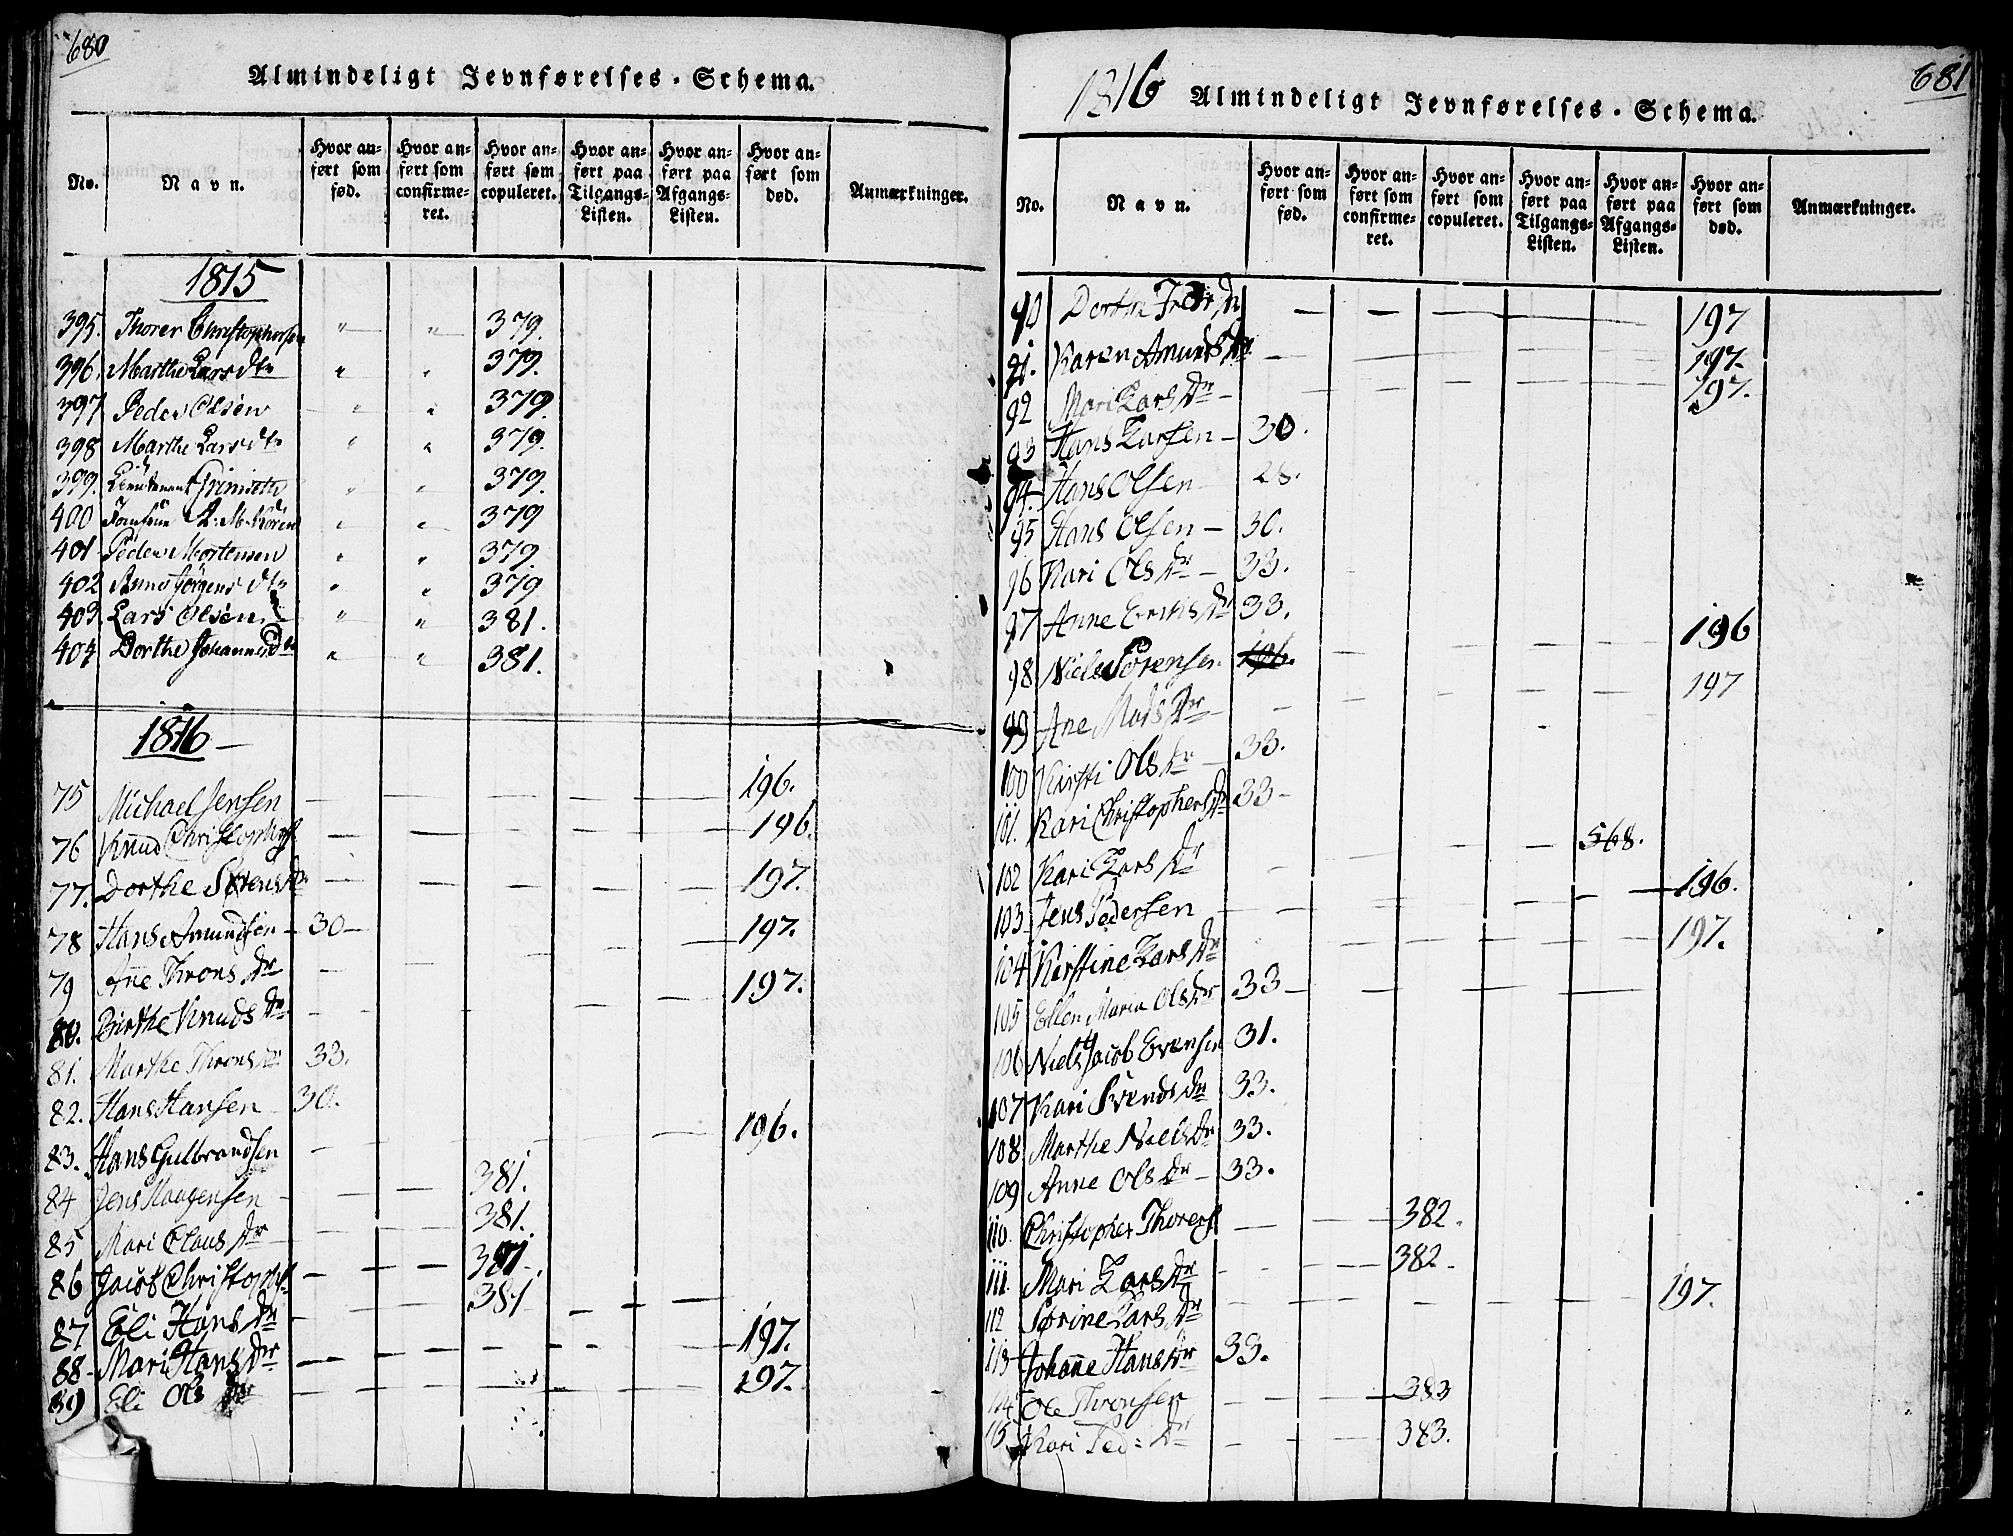 680
Almindeligt Jevnførelses-Schema.
No. Navn. Hvor anført som fød. Hvor anført som confirmeret. Hvor anført som copuleret. Hvor anført paa Tilgangs-Listen. Hvor anført paa Afgangs-Listen. Hvor anført som død. Anmærkninger.
1815
395. Thorer Christophersen " " 379.
396. Marthe Larsdtr " " 379.
397 Peder Olsen " " 379.
398 Marthe Larsdtr " " 379.
399. Lieutenant " " 379.
400 Jomfrue A. M. Koren " " 379
401 Peder Mortensen " " 379.
402 Anne Jörgensdtr " " 379
403. Lars Olsen " " 381.
404 Dorthe Johannesdtr " " 381.
1816
75 Michael Jensen — — — — — 196.
76 Knud Christophers — — — — — 196.
77. Dorthe Sørensdr — — — — — 197.
78 Hans Amundsen — 30 — — 197.
79 Ane Throns Dr — — — — — 197.
80. Birthe Knuds Dr
81. Marthe Throns Dr 33.
82. Hans Hansen 30.
83. Hans Gulbrandsen — — — — — 196.
84 Jens Haagensen — — 381.
85 Mari Claus Dr — — 381.
86 Jacob Christophs — — 381.
87 Eli Hans Dr — — 381
88 Mari Hans Dr — — — — — 197.
89 Eli Ols Dr — — — — — 197.
1816 Almindeligt Jevnførelses-Schema.
681
No. Navn. Hvor anført som fød. Hvor anført som confirmeret. Hvor anført som copuleret. Hvor anført paa Tilgangs-Listen. Hvor anført paa Afgangs-Listen. Hvor anført som død. Anmærkninger.
90 Dorthe Dr — — — — 197
91. Karen Amunds Dr — — — — 197.
92 Mari Lars Dr — — — — 197.
93 Hans Larsen — 30.
94. Hans Olsen 28.
95 Hans Olsen — 30.
96 Kari Ols Dr — 33.
97 Anne Dr 33.
98 Niels Sörensen 196. — — — — 196
99 Ane Mads Dr — — — — 197
100 Kirsti Ols Dr — 33.
101. Kari Christophers Dr 33 —
102 Kari Lars Dr — — — — 568.
103 Jens Pedersen — — — — — 196.
104 Kirstine Lars Dr — — — — — 197.
105 Ellen Maria Ols Dr 33 —
106 Niels Jacob Evensen 31.
107 Kari Svends Dr 33.
108 Marthe Niels Dr 33.
109 Anne Ols Dr — 33.
110. Christopher Thorers — — 382.
111. Mari Lars Dr — — 382.
112 Sørine Lars Dr — — — — — 197.
113 Johanne Hans Dr 33.
114 Ole Thronsen — — 383
115 Kari Ped: Dr — — 383.